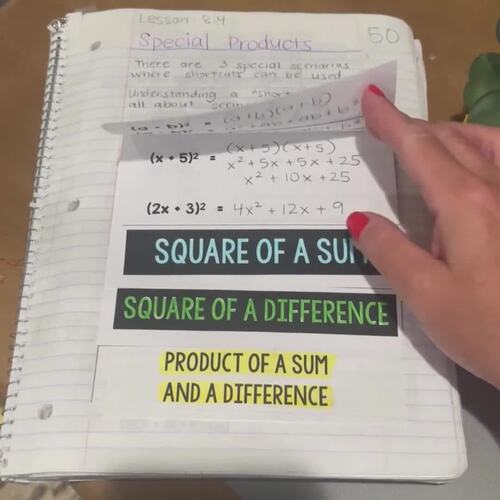 Lesson 8.4
50
Special Products
There are 3 special scenarios
where shortcuts can be used
Understanding a "short
all about seein
= (a+b)(a+b)
(x + 5)² = (x+5)(x+5)
x² + 5x + 5x + 25
x² + 10x + 25
(2x + 3)² = 4x² + 12x + 9
SQUARE OF A SUM
SQUARE OF A DIFFERENCE
PRODUCT OF A SUM
AND A DIFFERENCE